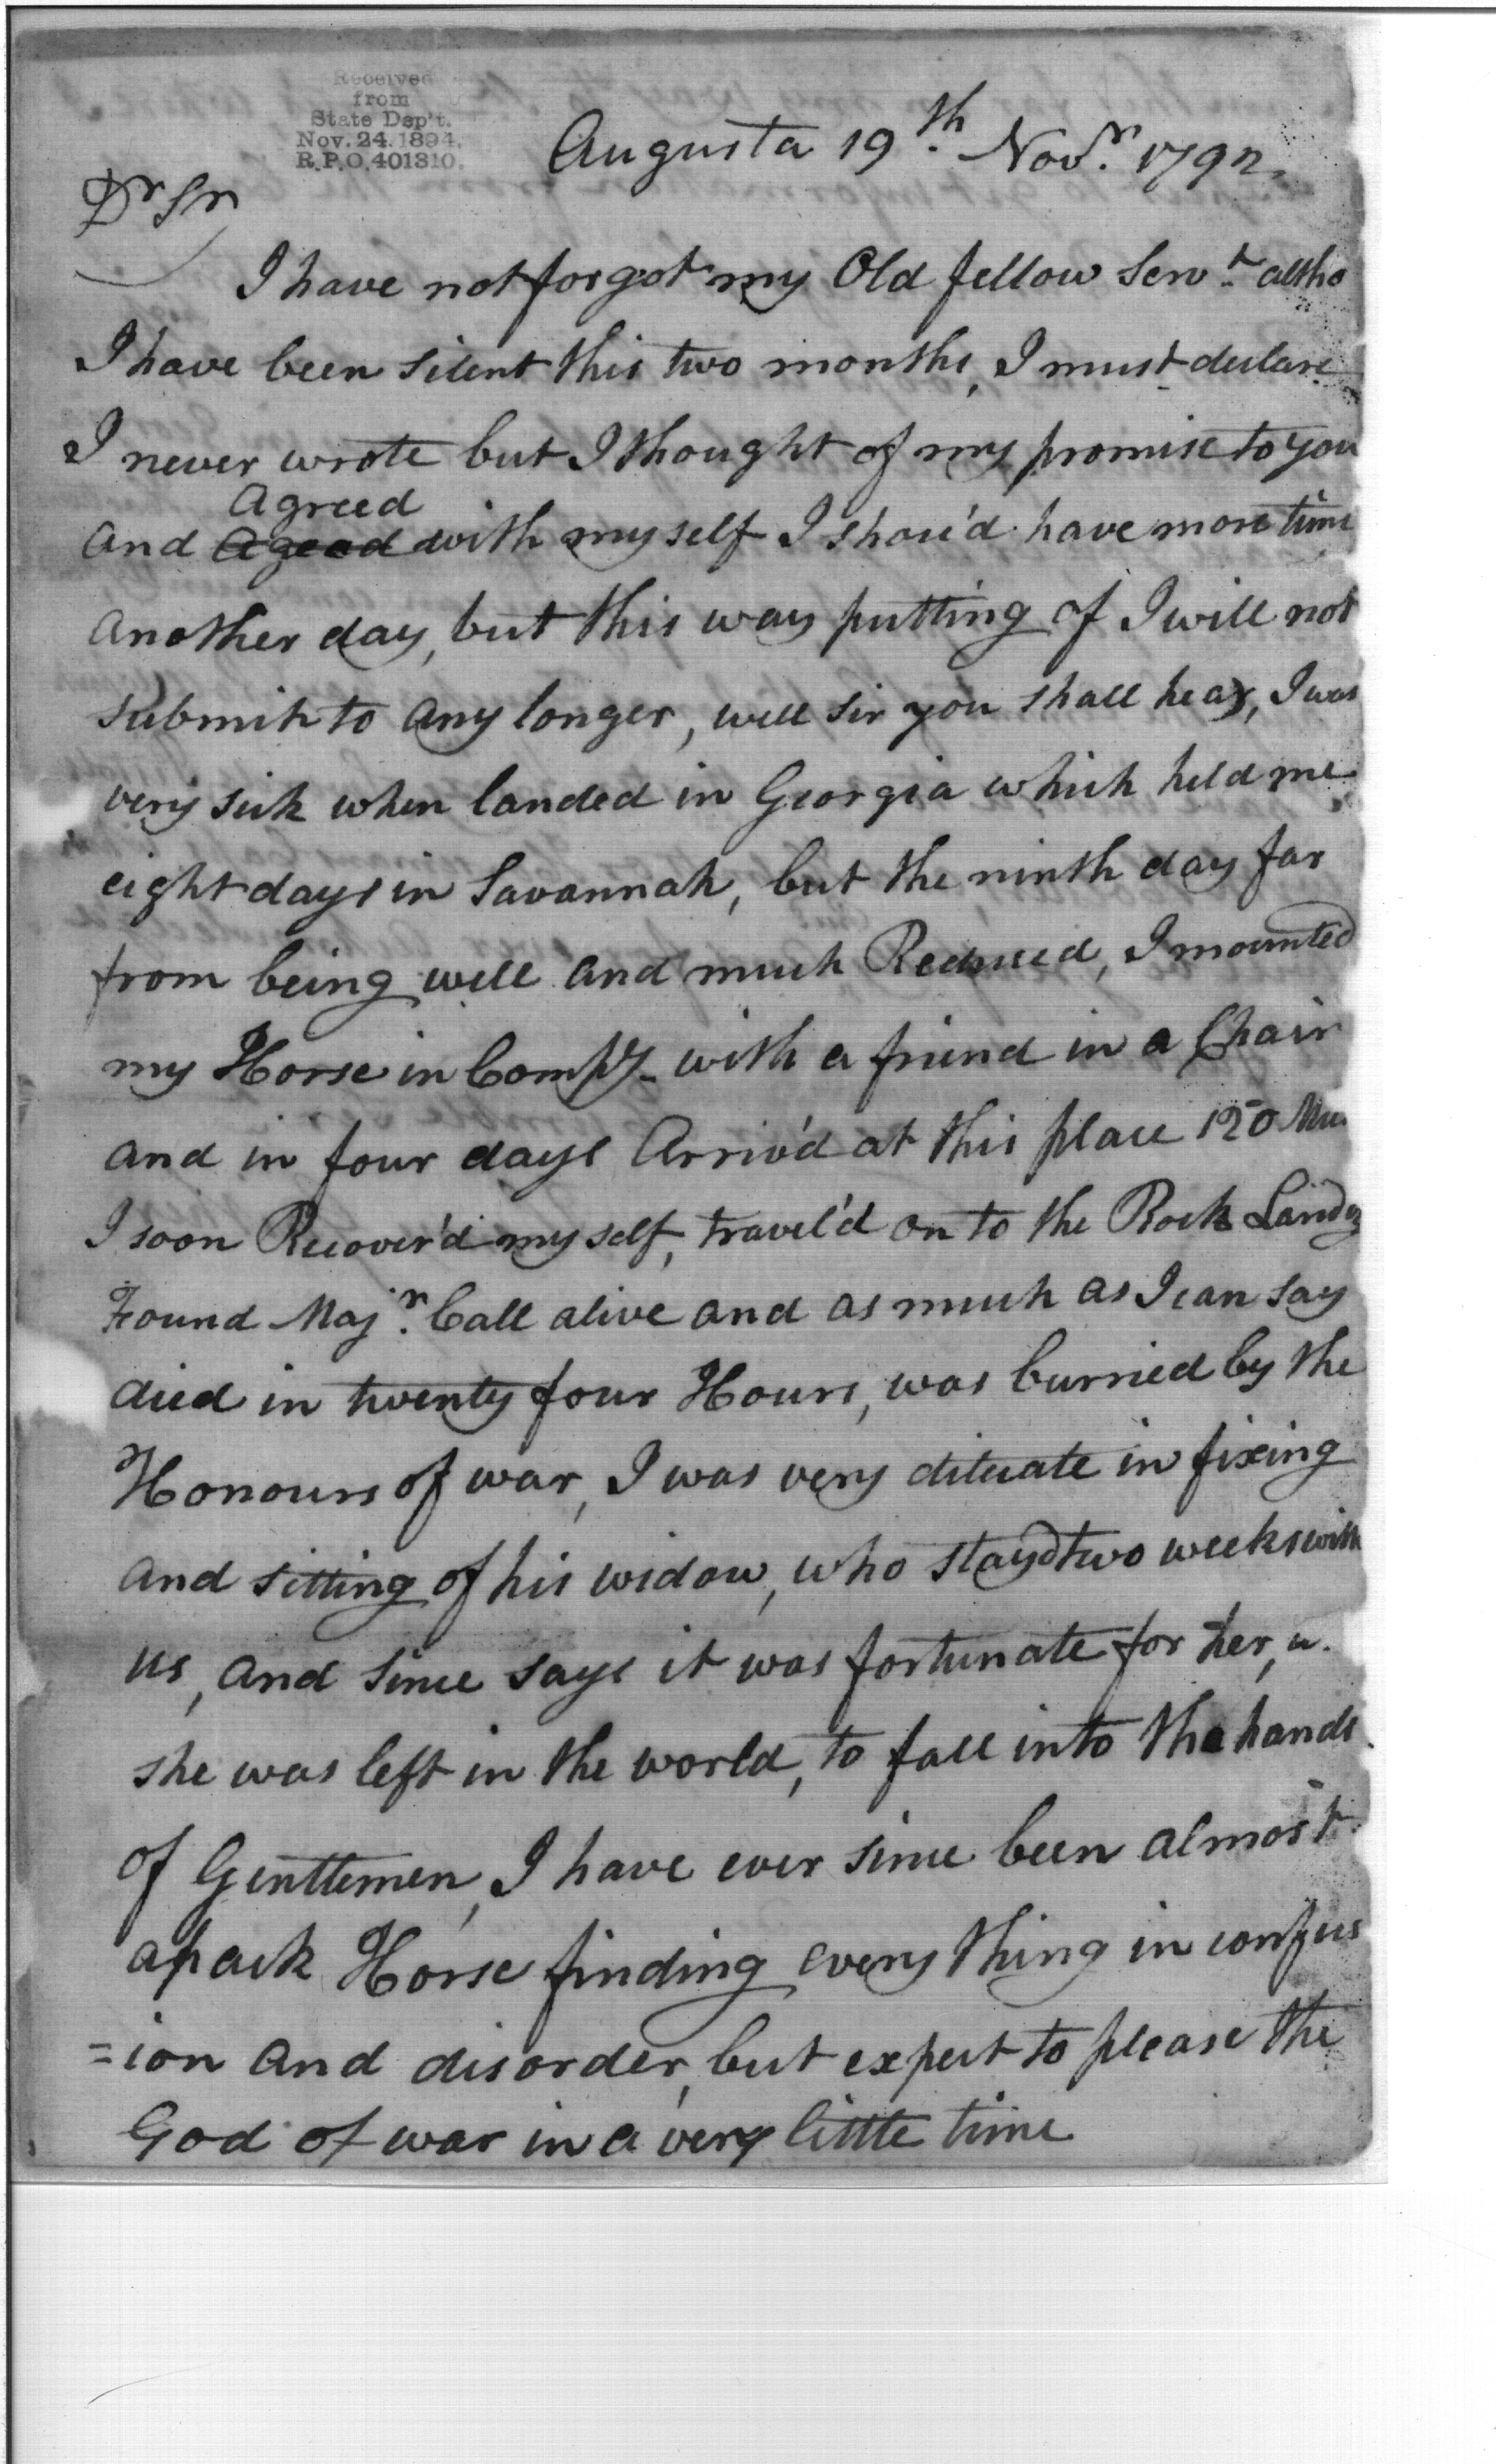 Received
from
State Dep't.
Nov. 24. 1894.
R.P.O. 401310.
Augusta 19th. Novr. 1792.
Dr Sr
I have not forgot my Old fellow Servt. altho
I have been silent this two months, I must declare
I never wrote but I thought of my promise to you
Agreed
And Ageed with myself I shou'd have more time
another day, but this way putting of I will not
submit to any longer, well sir you shall hear, I was
very sick when landed in Georgia which held me
eight days in Savannah, but the ninth day far
from being well and much Reduced, I mounted
my Horse in Compy. with a friend in a Chair
and in four days Arriv'd at this place 120
I soon Recover'd myself, travel'd on to the Rock Landg
Found Majr. Call alive and as much as I can say
died in twenty four Hours, was burried by the
Honours of war, I was very diteate in fixing
and sitting of his widow, who stayd two weeks with
us, and since says it was fortunate for her,
she was left in the world, to fall into the hands
of Genttemen, I have ever since been almost
a pack Horse finding every thing in confus
=ion and disorder, but expect to please the
God of war in a very little time